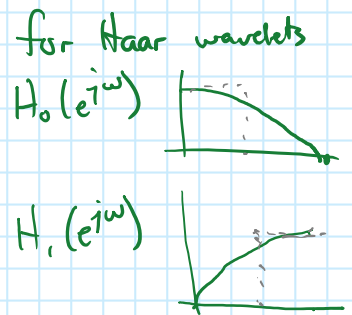 for Haar wavelets
H₀(e^{jω})
H₁(e^{jω})